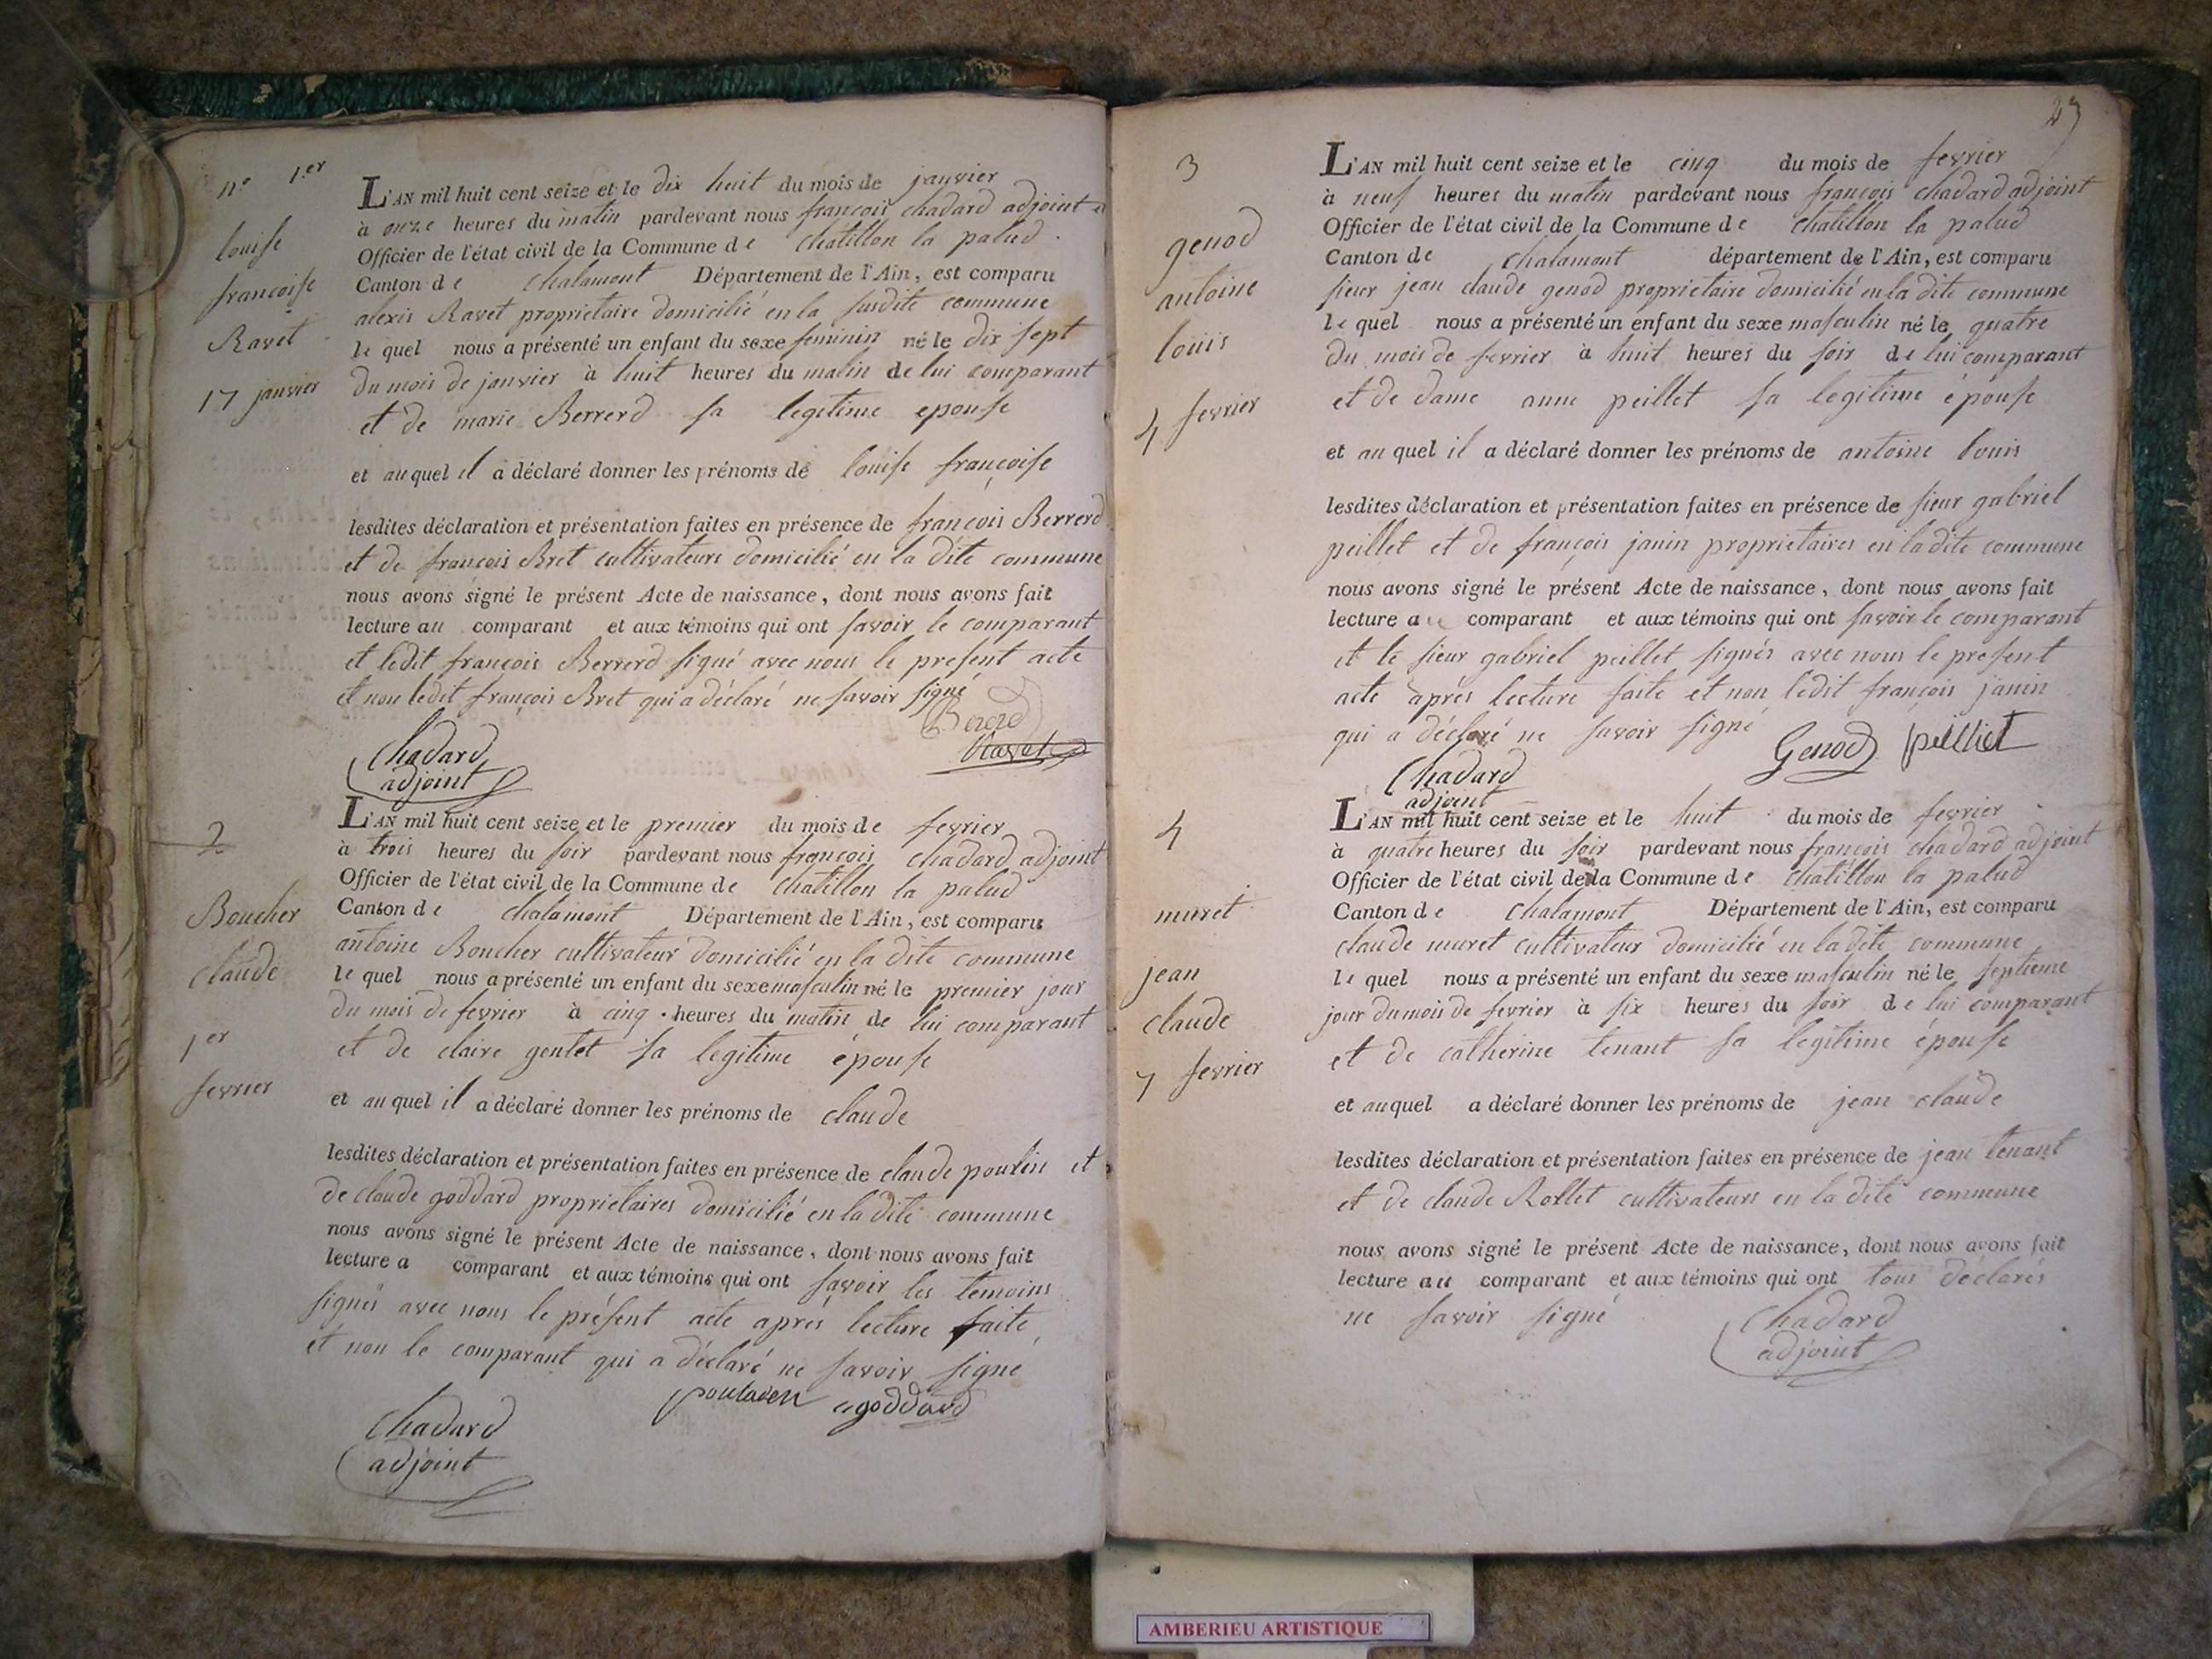 n.e 1.er
louise
françoise
Ravet
17 janvier
L'AN mil huit cent seize et le dix huit du mois de janvier
à onze heures du matin pardevant nous françois chadard adjoint
Officier de l'état civil de la Commune de chatillon la palud
Canton de chalamont Département de l'Ain, est comparu
alexis Ravet proprietaire domicilié en la susdite commune
le quel nous a présenté un enfant du sexe feminin né le dix sept
du mois de janvier à huit heures du matin de lui comparant
et de marie Berrerd sa legitime epouse
et auquel il a déclaré donner les prénoms de louise françoise
lesdites déclaration et présentation faites en présence de françois Berrerd
et de françois Bret cultivateurs domicilié en la dite commune
nous avons signé le présent Acte de naissance, dont nous avons fait
lecture au comparant et aux témoins qui ont savoir le comparant
et ledit françois Berrerd signé avec nous le present acte
et non ledit françois Bret qui a déclaré ne savoir signé
Berard
Ravet
Chadard
adjoint
2
Boucher
claude
1er
fevrier
L'AN mil huit cent seize et le premier du mois de fevrier
à trois heures du soir pardevant nous françois chadard adjoint
Officier de l'état civil de la Commune de chatillon la palud
Canton de chalamont Département de l'Ain, est comparu
antoine Boucher cultivateur domicilié en la dite commune
le quel nous a présenté un enfant du sexe masculin né le premier jour
du mois de fevrier à cinq heures du matin de lui comparant
et de claire gentet sa legitime épouse
et au quel il a déclaré donner les prénoms de claude
lesdites déclaration et présentation faites en présence de claude poulin et
de claude goddard proprietaires domicilié en la dite commune
nous avons signé le présent Acte de naissance, dont nous avons fait
lecture a comparant et aux témoins qui ont savoir les temoins
signés avec nous le présent acte aprés lecture faite
et non le comparant qui a déclaré ne savoir signé
goddard
Chadard
adjoint
23
3
genod
antoine
louis
4 fevrier
L'AN mil huit cent seize et le cinq du mois de fevrier
à neuf heures du matin pardevant nous françois chadard adjoint
Officier de l'état civil de la Commune de chatillon la palud
Canton de chalamont département de l'Ain, est comparu
sieur jean claude genod proprietaire domicilié en la dite commune
le quel nous a présenté un enfant du sexe masculin né le quatre
du mois de fevrier à huit heures du soir de lui comparant
et de dame anne peillet sa legitime épouse
et au quel il a déclaré donner les prénoms de antoine louis
lesdites déclaration et présentation faites en présence de sieur gabriel
peillet et de françois janin proprietaires en la dite commune
nous avons signé le présent Acte de naissance, dont nous avons fait
lecture au comparant et aux témoins qui ont savoir le comparant
et le sieur gabriel peillet signés avec nous le present
acte aprés lecture faite et non ledit françois janin
qui a déclaré ne savoir signé
Genod peilliet
Chadard
adjoint
4
muret
jean
claude
7 fevrier
L'AN mil huit cent seize et le huit du mois de fevrier
à quatre heures du soir pardevant nous françois chadard adjoint
Officier de l'état civil de la Commune de chatillon la palud
Canton de chalamont Département de l'Ain, est comparu
claude muret cultivateur domicilié en la dite commune
le quel nous a présenté un enfant du sexe masculin né le septieme
jour du mois de fevrier à six heures du soir de lui comparant
et de catherine tenant sa legitime épouse
et auquel a déclaré donner les prénoms de jean claude
lesdites déclaration et présentation faites en présence de jean tenant
et de claude Rollet cultivateurs en la dite commune
nous avons signé le présent Acte de naissance, dont nous avons fait
lecture au comparant et aux témoins qui ont tous déclarés
ne savoir signé
Chadard
adjoint
AMBERIEU ARTISTIQUE